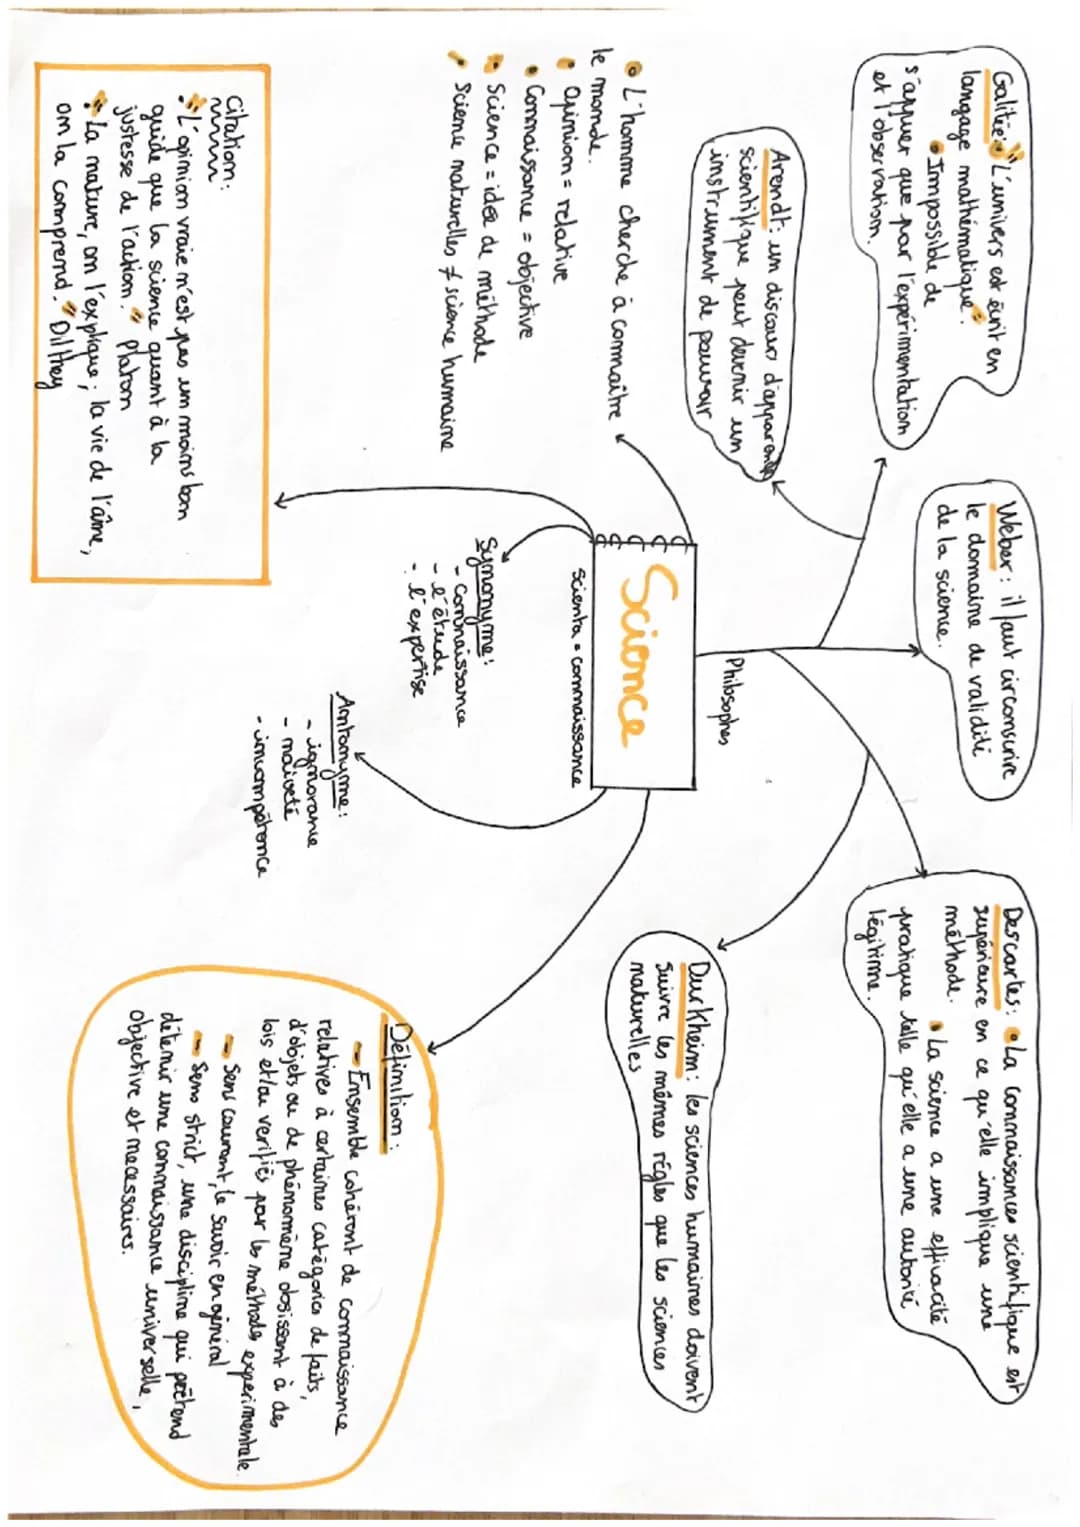 Galilée: "L'univers est écrit en
langage mathématique."
Impossible de
s'appuer que par l'expérimentation
et l'observation.
Weber: il faut circonscrire
le domaine de validité
de la science.
Descartes: La connaissances scientifique est
supérieure en ce qu'elle implique une
méthode. La science a une efficacité
pratique telle qu'elle a une autorité
légitime.
Arendt: un discours d'apparence
scientifique peut devenir un
instrument de pouvoir
Philosophes
Durkheim: les sciences humaines doivent
suivre les mêmes règles que les sciences
naturelles
L'homme cherche à connaître
le monde.
opinion = relative
Connaissance = objective
Science = idée de méthode
Science naturelles ≠ science humaine
Science
scienta = connaissance
Synonyme:
- Connaissance
- l'étude
- l'expertise
Antonyme:
- ignorance
- naïveté
- incompétence
Définition:
Ensemble cohéront de connaissance
relatives à certaines catégories de faits,
d'objets ou de phénomène obéissant à des
lois et/ou verifiés par les méthodes experimentale
Sens courant, le savoir en général
Sens strict, une discipline qui prétend
détenir une connaissance universelle,
objective et necessaires.
Citation:
"L'opinion vraie n'est pas un moins bon
guide que la science quant à la
justesse de l'action." Platon
"La nature, on l'explique; la vie de l'âme,
on la comprend." Dilthey